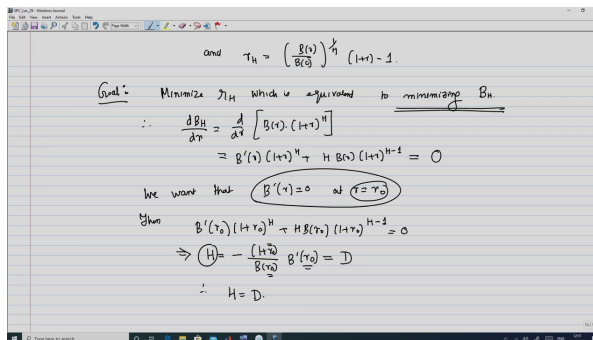 SPC_Lec_03 - Windows Journal
File Edit View Insert Actions Tools Help
Page Width
and r_H = (B(r)/B(0))^{1/H} (1+r) - 1.
Goal: Minimize r_H which is equivalent to minimizing B_H.
∴ dB_H/dr = d/dr [B(r).(1+r)^H]
= B'(r) (1+r)^H + H B(r) (1+r)^{H-1} = 0
We want that B'(r)=0 at r=r_0
Then
B'(r_0) (1+r_0)^H + H B(r_0) (1+r_0)^{H-1} = 0
⇒ H = - (1+r_0)/B(r_0) B'(r_0) = D
∴ H = D.
Type here to search